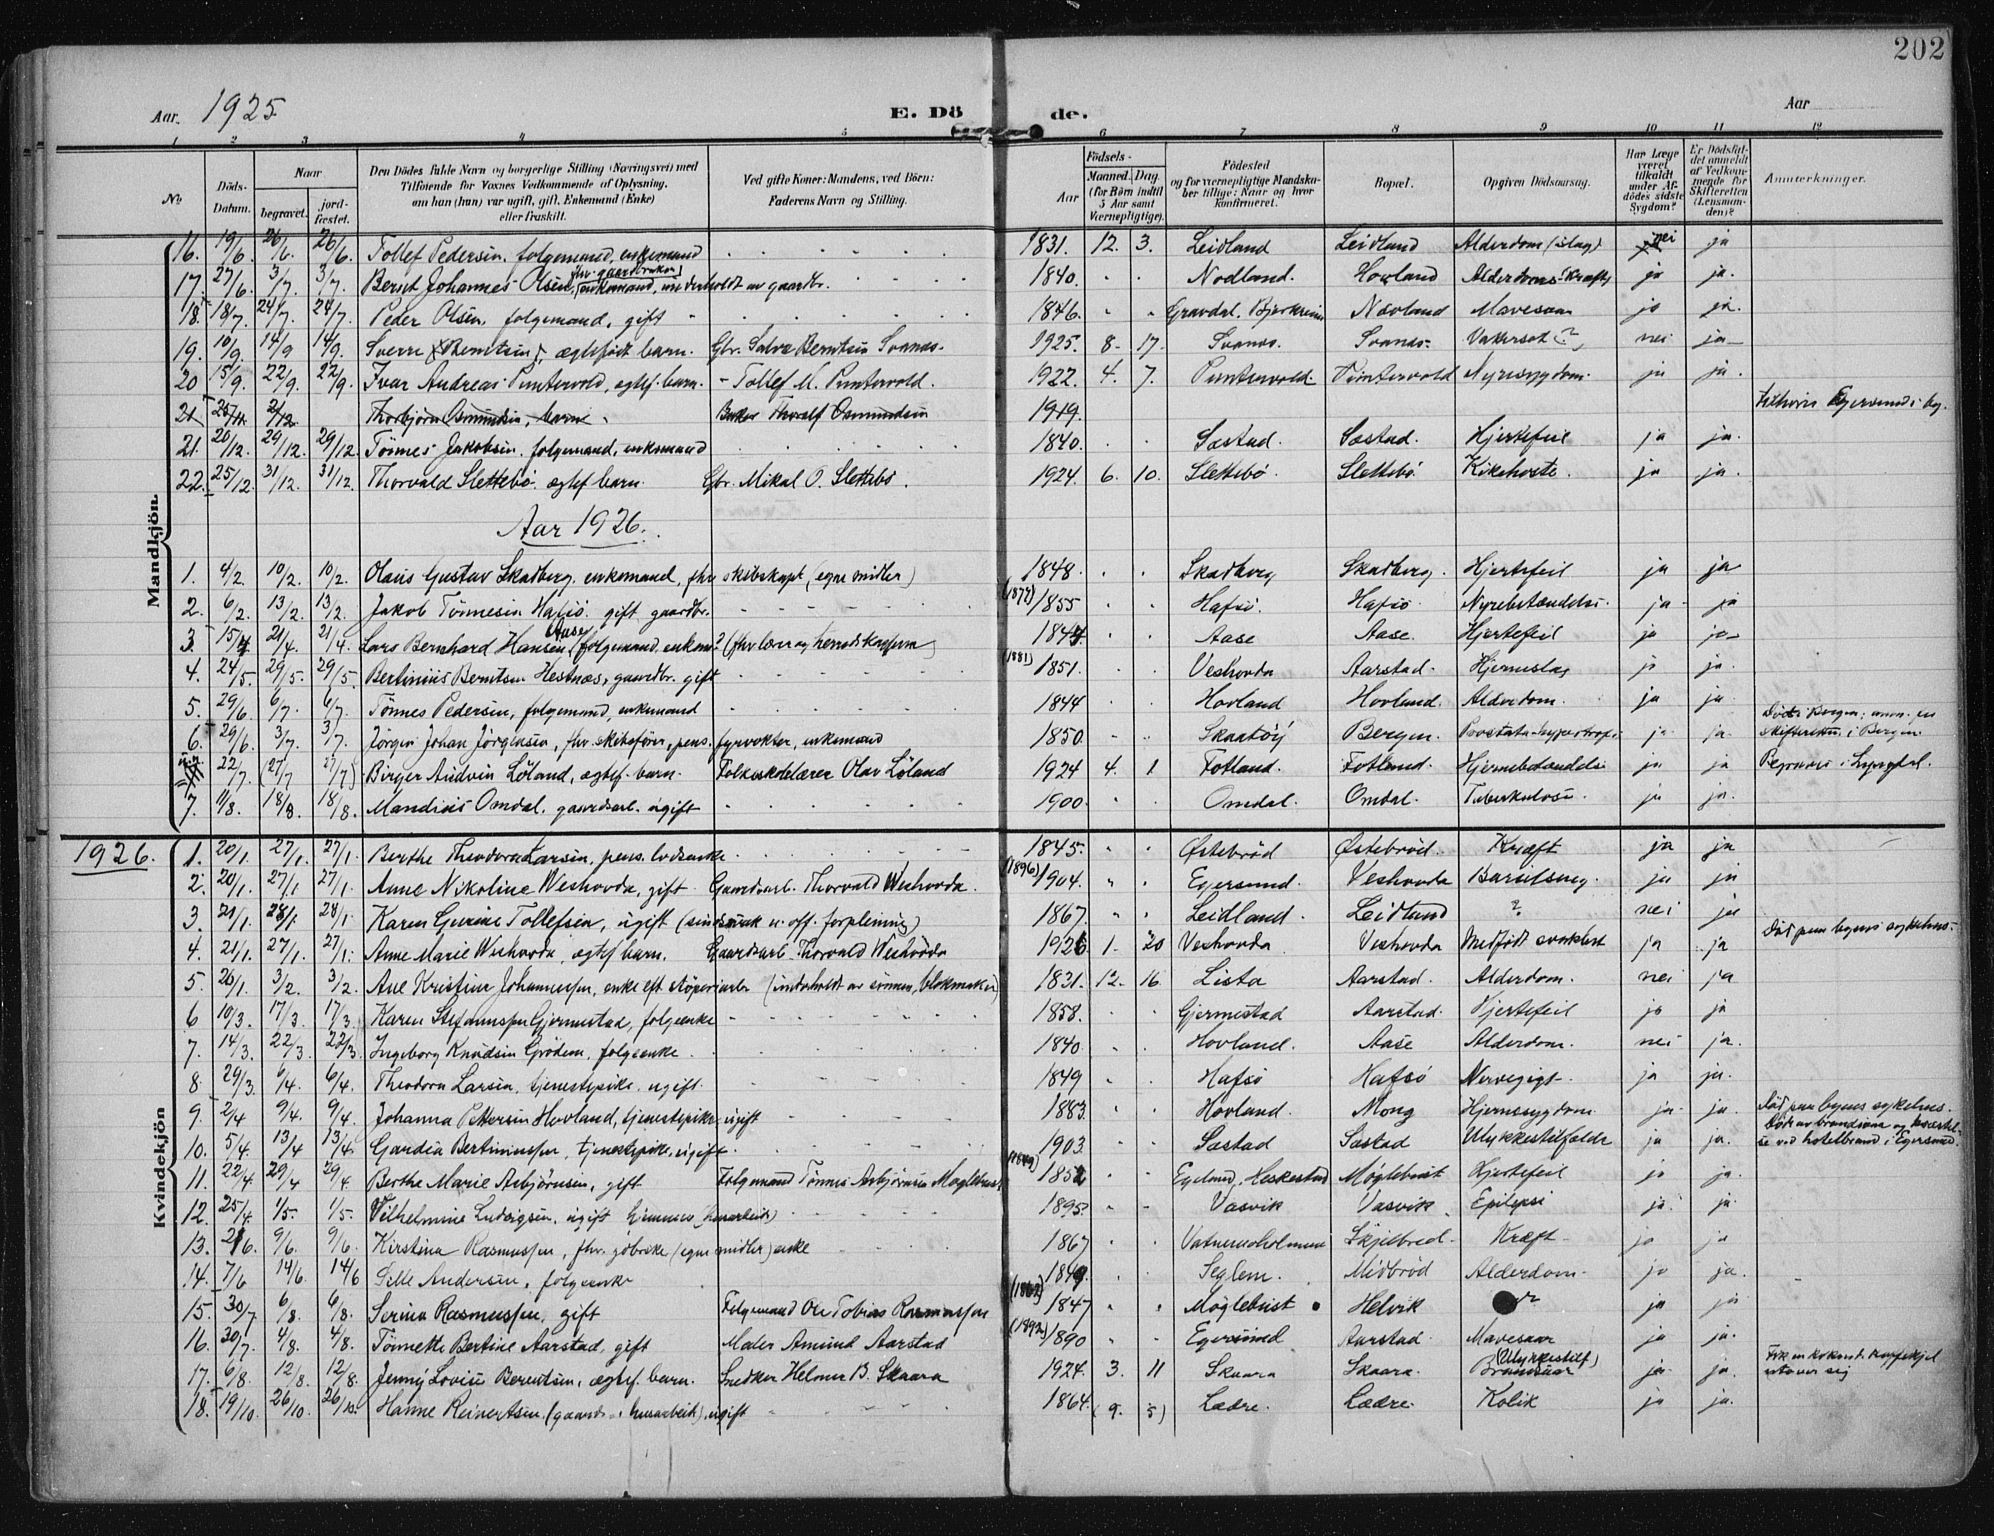 202
Aar 1925 E. Dö de. Aar
1 2 3 4 5 6 7 8 9 10 11 12
No Döds-Datum. Naar begravet. jordfæstet. Den Dödes fulde Navn og borgerlige Stilling (Næringsvei) med Tilföiende for Voxnes Vedkommende af Oplysning, om han (hun) var ugift, gift, Enkemand (Enke) eller fraskilt. Ved gifte Koner: Mandens, ved Börn: Faderens Navn og Stilling. Födsels- Aar Maaned. Dag. (for Börn indtil 5 Aar samt Værnepligtige). Födested og for værnepligtige Mandskaber tillige: Naar og hvor konfirmeret. Bopæl. Opgiven Dödsaarsag. Har Læge været tilkaldt under Afdödes sidste Sygdom? Er Dödsfaldet anmeldt af Vedkommende for Skifteretten (Lensmanden)? Anmerkninger.
Mandkjön.
16. 19/6. 26/6. 26/6. Tollef Pedersen, folgemand, enkemand 1831. 12. 3. Leidland Leidland Alderdom (slag) nei ja
17. 27/6. 3/7. 3/7. Bernt Johannes Olsen, (fhv. gaardbruker) enkemand, underholdt av gaardbr. 1840. Nodland. Hovland Alderdoms Kræft ja ja.
18. 18/7. 24/7. 24/7. Peder Olsen, folgemand, gift 1846. Gravdal, Bjerkreim Nævland Mavesaar ja ja.
19. 10/9. 14/9 14/9. Sverre Berntsen, ægtefødt barn. Gbr. Salve Berntsen Svanes. 1925. 8 17. Svanes. Svanes. nei ja
20 15/9. 22/9. 22/9. Ivar Andreas Puntervold, egtef. barn. Tollef M. Puntervold. 1922. 4. 7. Puntervold Puntervold Nyresygdom. ja ja.
21 Thorbjørn Osmundsen, barn. Thoralf Osmundsen 1919. Egersund i by.
21. 20/12. 29/12. 29/12. Tönnes Jakobsen, folgemand, enkemand 1840. Sæstad. Sæstad. Hjertefeil ja ja.
22. 25/12. 31/12. 31/12. Thorvald Slettebö, egtef barn. Gbr. Mikal O. Slettebö. 1924. 6. 10. Slettebö Slettebö Kikehoste. ja ja.
Aar 1926.
1. 4/2. 10/2. 10/2. Olaus Gustav Skadberg, enkemand, fhv. skibskapt. (egne midler) 1848. Skadberg Skadberg. Hjertefeil ja ja
2. 6/2. 13/2. 13/2. Jakob Tönnesen Hafsö. gift gaardbr. (1877) 1855 Hafsö. Hafsö Nyrebetændelse. ja ja
3. 15/4 21/4. 21/4. Lars Bernhard Hansen Aase, folgemand, enkem. (fhv lærer og herredskasserer) 1844. Aase Aase. Hjertefeil ja ja
4. 24/5. 29/5. 29/5. Bertinius Berntsen Hestnæs, gaardbr. gift (1881) 1851. Veshovda Aarstad. Hjerneslag ja ja.
5. 29/6. 6/7. 6/7. Tönnes Pedersen, folgemand, enkemand 1844 Hovland Hovland. Alderdom. ja ja.
6. 29/6. 3/7. 3/7. Jörgen Johan Jörgensen, fhv. skibsförer, pens. fyrvokter, enkemand 1850. Skaatöy Bergen. Prostata-hypertrofi ja ja. Död i Bergen; anm. for skifteretten i Bergen.
22/7. (27/7 27/7) Birger Audvin Löland, ægtef. barn. Folkeskolelærer Olav Löland 1924 4. 1 Fotland. Fotland. Hjernebetændelse ja ja Begravet i Lyngdal.
7. 11/8. 18/8. 18/8. Mandius Omdal, gaardsarb. ugift 1900. Omdal. Omdal. Tuberkulose ja ja.
1926.
Kvindekjön
1. 20/1. 27/1. 27/1. Berthe Theodora Larsen, pens. lodsenke 1845. Östebröd Östebröd. Kræft ja ja
2. 20/1. 27/1. 27/1. Anne Nikoline Weshovda, gift. Gaardsarb. Thorvald Weshovda. (1896) 1904. Egersund. Veshovda Barselseng. ja ja
3 21/1. 28/1. 28/1. Karen Gurine Tollefsen, ugift (sindssyk u. off. forpleining) 1867. Leidland. Leidland ? nei ja
4. 21/1. 27/1. 27/1. Anne Marie Weshovda, egtef barn. Gaardsarb. Thorvald Weshovda 1926 1. 20 Veshovda Veshovda Medfödt svakhet ja ja Död paa byens sykehus.
5. 26/1. 3/2. 3/2. Ane Kristine Johannessen, enke eft stöperiarb. (underholdt av sönnen, blokmaker) 1831. 12. 16. Lista Aarstad. Alderdom. nei ja
6 10/3. 17/3. 17/3. Karen Stefanussen Gjermestad, folgeenke 1858. Gjermestad Aarstad. Hjertefeil ja ja
7. 14/3. 22/3. 22/3. Ingeborg Knudsen Grödem, folgeenke. 1840. Hovland. Aase Alderdom. nei ja.
8. 29/3. 6/4. 6/4. Theodora Larsen, tjenestepike, ugift. 1849 Hafsö Hafsö Nervegigt. ja ja.
9. 2/4. 9/4. 9/4. Johanna Pettersen Hovland, tjenestepike, ugift 1883. Hovland. Mong Hjernesygdom. ja. ja. Död paa byens sykehus.
10. 5/4. 13/4 13/4. Gardia Bertinussen, tjenestepike, ugift 1903. Sæstad Sæstad Ulykkestilfælde ja ja. Död av brandsaar og kvæstelse ved hotelbrand i Egersund.
11. 22/4. 29/4. 29/4. Berthe Marie Asbjörnsen, gift Folgemand Tönnes Asbjörnsen Möglebust (1849) 1852 Egeland, Heskestad Möglebust Hjertefeil ja ja.
12. 25/4. 1/5. 1/5. Vilhelmine Ludvigsen, ugift hjemmev. (husarbeide) 1895. Vasvik Vasvik. Epilepsi ja ja.
13. 2/6. 9/6. 9/6. Kirstina Rasmussen, fhv. gbrske (egne midler) enke 1867 Vatnemoholmen Skjelbred. Kræft ja ja
14. 7/6 14/6. 14/6 Sille Andersen, folgeenke 1849. Seglem. Midbröd Alderdom. ja ja.
15. 30/7. 6/8. 6/8. Serina Rasmussen, gift Folgemand Ole Tobias Rasmussen (1862) 1847 Möglebust Helvik ja ja
16. 30/7. 4/8. 4/8. Tönnette Bertine Aarstad, gift Maler Amund Aarstad (1892) 1890 Egersund Aarstad. Mavesaar ja ja.
17. 6/8. 12/8. 12/8. Jenny Lovise Berentsen, ægtef. barn. Snedker Helmer B. Skaara 1924. 3. 11 Skaara Skaara. (Ulykkestilf) Brandsaar ja. ja. Fik en kokende kaffekjel utover sig
18. 19/10. 26/10. 26/10. Hanne Reinertsen, (gaards- husarbeide), ugift 1864. (9. 5) Lædre. Lædre. Kolik ja ja.